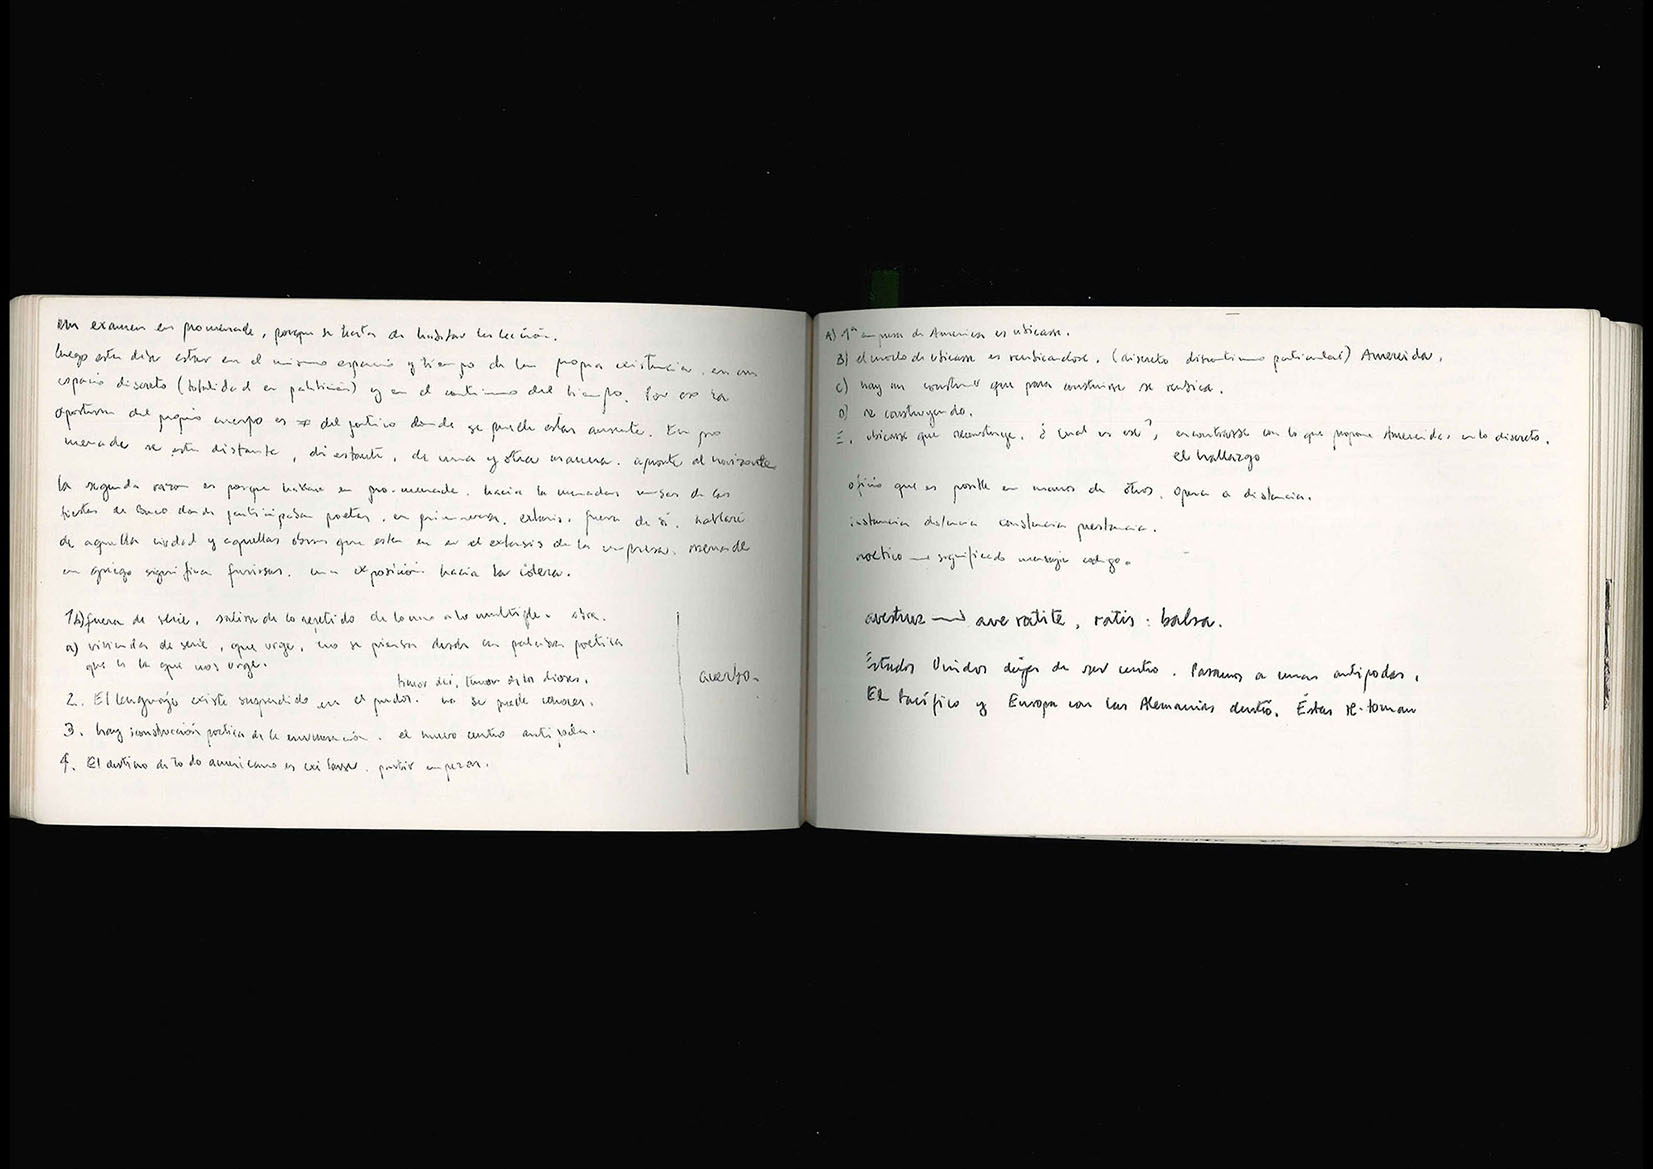 un examen en promenade, porque se trata de habitar la lección.
luego esta dice estar en el mismo espacio y tiempo de la propia existencia. en un
espacio discreto (totalidad en partición) y en el continuo del tiempo. Por eso la
apertura del propio cuerpo es del pórtico donde se puede estar ausente. En pro
menade se está distante, di estante, de una y otra manera. aparte al horizonte
la segunda razón es porque hablaré en pro-menade. hacia la menadas musas de las
fiestas de Baco donde participaban poetas. en primavera. extasis. fuera de sí. hablaré
de aquella ciudad y aquellas obras que están en el extasis de la empresa. menade
en griego significa furiosas. una exposición hacia la cólera.
1b) fuera de serie, salirse de lo repetido de lo uno a lo multiple. obra.
a) vivienda de serie, que urge, no se piensa desde la palabra poética
que es la que nos urge.
temor dei, temor de los dioses.
2. El lenguaje existe suspendido en el pudor. no se puede conocer.
3. hay construcción poética de la enumeración. el nuevo centro antípoda.
4. El destino de todo americano es exiliarse. partir empezar.
acerbo.
A) 1ª empresa de America es ubicarse.
B) el modo de ubicarse es reubicandose. (discreto discontinuo particular) Amereida.
C) hay un construir que para construirse se reubica.
D) re construyendo.
E. ubicarse que reconstruye. ¿Cual es ese?, encontrarse con lo que propone Amereida en lo discreto.
el hallazgo
oficio que es posible en manos de otros. opera a distancia.
instancia distancia constancia prestancia.
noetico → significado mensaje codigo.
avestruz → ave ratite, ratis: balsa.
Estados Unidos deja de ser centro. Pasamos a unas antípodas.
El Pacífico y Europa con las Alemanias dentro. Éstas re-toman